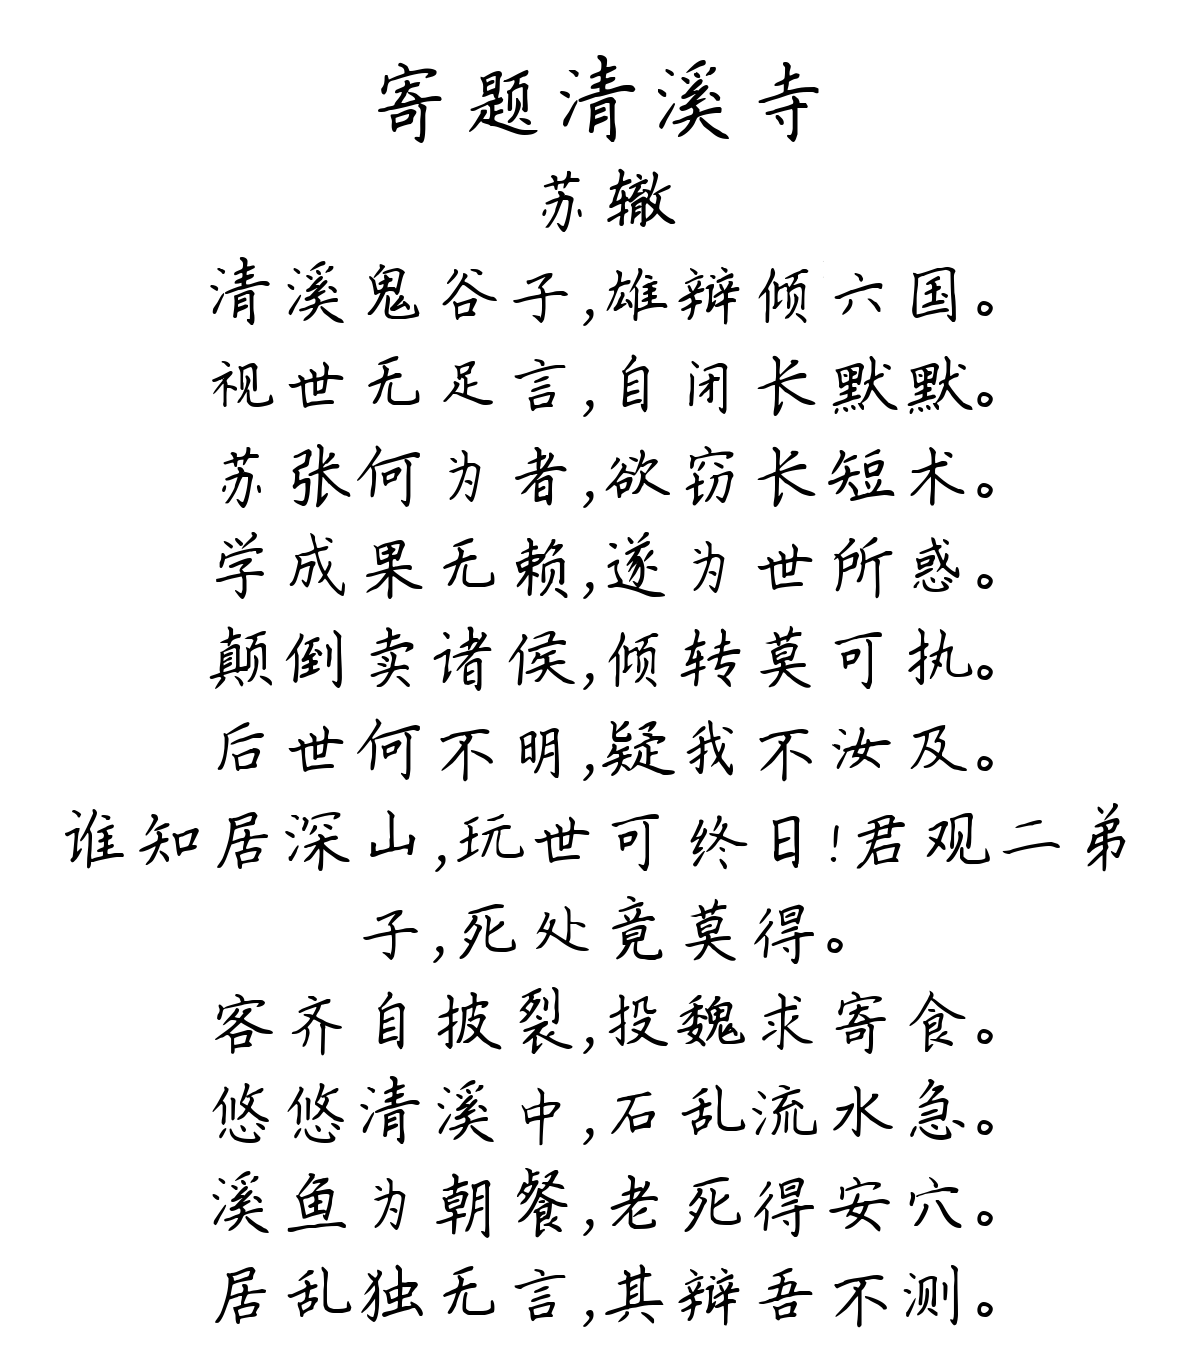 寄题清溪寺
苏辙
清溪鬼谷子,雄辩倾六国。
视世无足言,自闭长默默。
苏张何为者,欲窃长短术。
学成果无赖,遂为世所惑。
颠倒卖诸侯,倾转莫可执。
后世何不明,疑我不汝及。
谁知居深山,玩世可终日!君观二弟
子,死处竟莫得。
客齐自披裂,投魏求寄食。
悠悠清溪中,石乱流水急。
溪鱼为朝餐,老死得安穴。
居乱独无言,其辩吾不测。